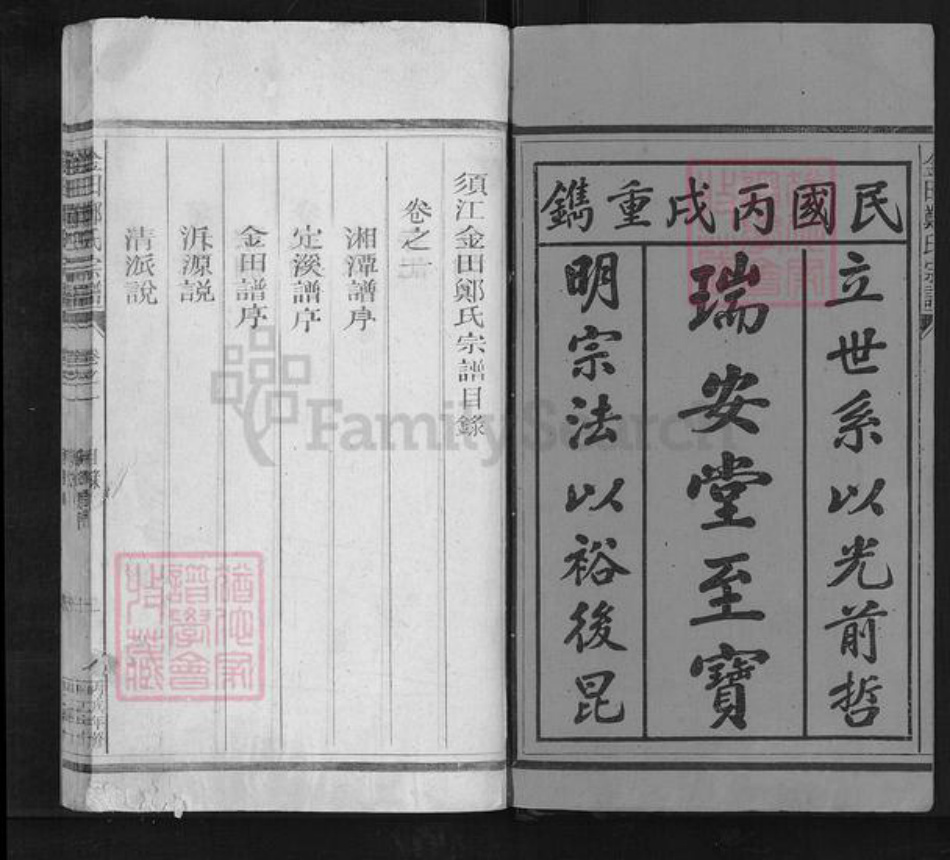 民國丙戌重鐫
立世系以光前哲
瑞安堂至寶
明宗法以裕後昆
須江金田鄭氏宗譜目錄
卷之一
湘潭譜序
定溪譜序
金田譜序
泝源説
清派說
金田鄭氏宗譜
卷之一
目錄
FamilySearch
猶他家譜學會收藏